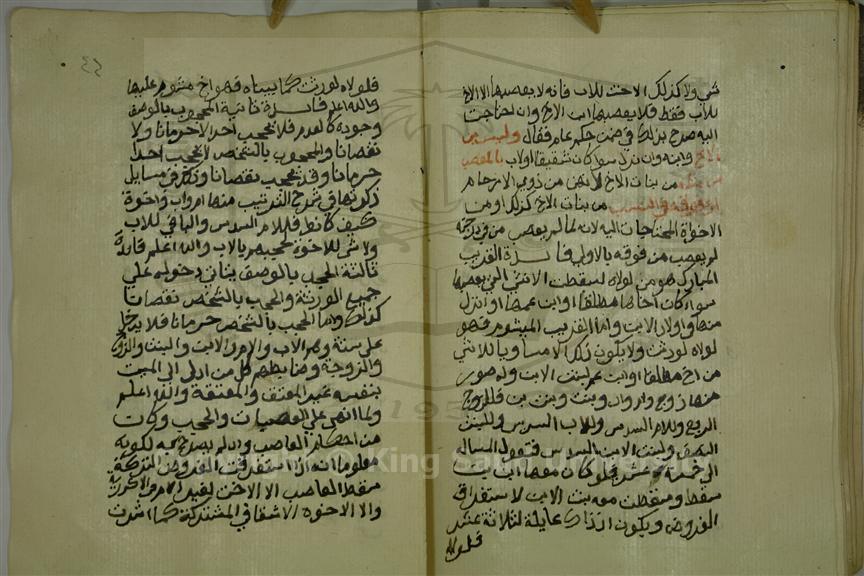 شي ولا كذلك الاخت للاب فانه لا يعصبها الا الاخ
للاب فقط فلا يعصبها ابن الاخ وان احتاجت
اليه صرح بذلك في ضمن حكم عام فقال وليس ابن
الاخ وابنه وان نزل سوا كان شقيقا او لاب بالمعصب
من مثله من بنات الاخ لانهن من ذوي الارحام
او فوقه في النسب من بنات الاخ كذلك او من
الاخوة المحتاجات اليه لانه لما لم يعصب من في درجته
لم يعصب من فوقه بالاولي فائدة القريب
المبارك هو من لولاه لسقطت الانثي التي يعصبها
سوا كان اخاها مطلقا او ابن عمها او انزل
منها من اولاد الابن واما القريب الميشوم فهو
لولاه لورثت ولا يكون ذلك الا مساويا للانثي
من اخ مطلقا او ابن عم لبنت الابن وله صور
منها زوج وام واب وبنت وبنت ابن فللزوج
الربع وللام السدس وللاب السدس وللبنت
النصف ولبنت الابن السدس فتعول المسالة
الي خمسة عشر فلو كان معها ابن ابن
سقط وسقطت معه بنت الابن لاستغراق
الفروض ويكون اذ ذاك عايلة لثلاثة عشر
فلولاه
فلولاه لورثت كما بيناه فهو اخ مشوم عليها
والله اعلم فائدة ثانية المحجوب بالوصف
وجوده كالعدم فلا يحجب احدا لا حرمانا ولا
نقصانا والمحجوب بالشخص لا يحجب احدا
حرمانا وقد يحجب نقصانا وذلك في مسايل
ذكرتها في شرح الترتيب منها ام واب واخوة
كيف كانوا فللام السدس والباقي للاب
ولا شي للاخوة لحجبهم بالاب والله اعلم فائدة
ثالثة الحجب بالوصف يتاتي دخوله علي
جميع الورثة والحجب بالشخص نقصانا
كذلك واما الحجب بالشخص حرمانا فلا يدخل
علي ستة وهم الاب والام والابن والبنت والزوج
والزوجة وضابطهم كل من ادلي الي الميت
بنفسه غير المعتق والمعتقة والله اعلم
ولما انهي علي العصبات والحجب وكان
من احكام العاصب وان لم يصرح به لكونه
معلوما انه اذا استغرقت الفروض التركة
سقط العاصب الا الاخت لغير الام في الاكدرية
والا الاخوة الاشقا في المشتركة كما اشرت